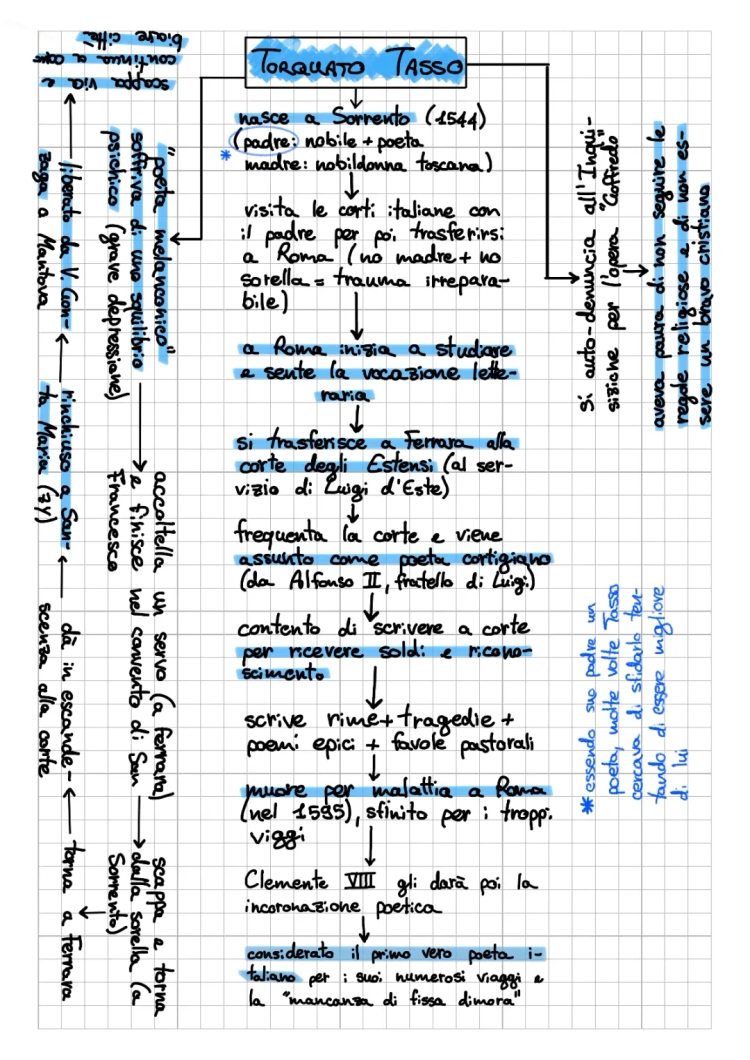 TORQUATO TASSO
nasce a Sorrento (1544)
(padre: nobile + poeta
*
madre: nobildonna toscana)
visita le corti italiane con
il padre per poi trasferirsi
a Roma (no madre + no
sorella = trauma irrepara-
bile)
a Roma inizia a studiare
e sente la vocazione lette-
raria
si trasferisce a Ferrara alla
corte degli Estensi (al ser-
vizio di Luigi d'Este)
frequenta la corte e viene
assunto come poeta cortigiano
(da Alfonso II, fratello di Luigi)
contento di scrivere a corte
per ricevere soldi e ricono-
scimento
scrive rime + tragedie +
poemi epici + favole pastorali
muore per malattia a Roma
(nel 1595), sfinito per i troppi
viggi
Clemente VIII gli darà poi la
incoronazione poetica
considerato il primo vero poeta i-
taliano per i suoi numerosi viaggi e
la "mancanza di fissa dimora"
"poeta melanconico"
soffriva di uno squilibrio
psichico (grave depressione)
accoltella un servo (a Ferrara)
e finisce nel convento di San
Francesco
scappa e torna
dalla sorella (a
Sorrento)
torna a Ferrara
dà in escande-
scenza alla corte
rinchiuso a San-
ta Maria (7y)
liberato da V. Gon-
zaga a Mantova
scappa via e
continua a cam
biare città
si auto-denuncia all'Inqui-
sizione per l'opera "Goffredo"
aveva paura di non seguire le
regole religiose e di non es-
sere un bravo cristiano
* essendo suo padre un
poeta, molte volte Tasso
cercava di sfidarlo ten-
tando di essere migliore
di lui